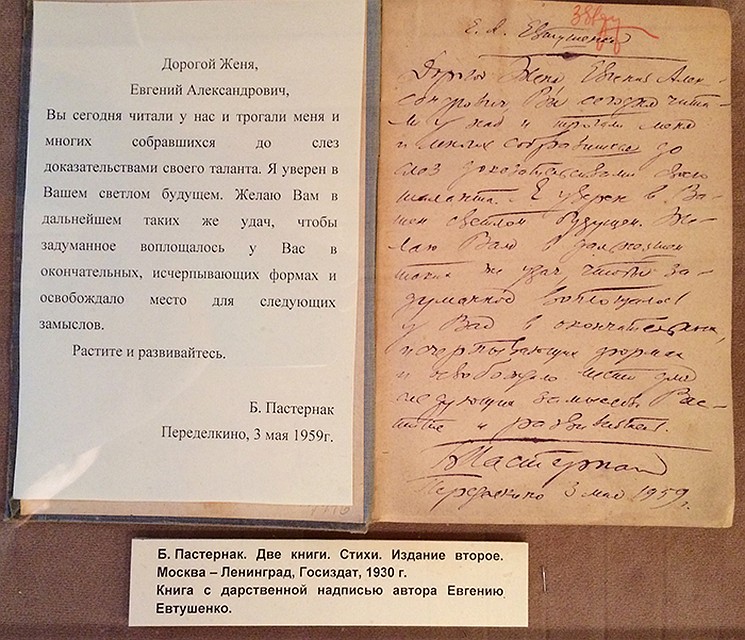 Дорогой Женя,
Евгений Александрович,
Вы сегодня читали у нас и трогали меня и
многих собравшихся до слез
доказательствами своего таланта. Я уверен в
Вашем светлом будущем. Желаю Вам в
дальнейшем таких же удач, чтобы
задуманное воплощалось у Вас в
окончательных, исчерпывающих формах и
освобождало место для следующих
замыслов.
Растите и развивайтесь.
Б. Пастернак
Переделкино, 3 мая 1959г.
Е. А. Евтушенко
Дорогой Женя, Евгений Алек-
сандрович, Вы сегодня чита-
ли у нас и трогали меня
и многих собравшихся до
слез доказательствами своего
таланта. Я уверен в Ва-
шем светлом будущем. Же-
лаю Вам в дальнейшем
таких же удач, чтобы за-
думанное воплощалось
у Вас в окончательных,
исчерпывающих формах
и освобождало место для
следующих замыслов. Рас-
тите и развивайтесь.
Б Пастернак
Переделкино 3 мая 1959 г.
Б. Пастернак. Две книги. Стихи. Издание второе.
Москва – Ленинград, Госиздат, 1930 г.
Книга с дарственной надписью автора Евгению
Евтушенко.